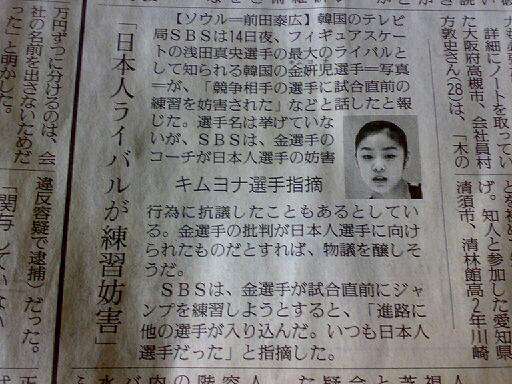 詳細にノートを取ってい
た大阪府高槻市、会社員村
方敦史さん(28)は、「木の
げ。知人と参加した愛知県
清須市、清林館高2年川崎
「日本人ライバルが練習妨害」
キムヨナ選手指摘
【ソウル=前田泰広】韓国のテレビ
局SBSは14日夜、フィギュアスケー
トの浅田真央選手の最大のライバルと
して知られる韓国の金妍児選手=写真
=が、「競争相手の選手に試合直前の
練習を妨害された」などと話したと報
じた。選手名は挙げていな
いが、SBSは、金選手の
コーチが日本人選手の妨害
行為に抗議したこともあるとしてい
る。金選手の批判が日本人選手に向け
られたものだとすれば、物議を醸しそ
うだ。
SBSは、金選手が試合直前にジャ
ンプを練習しようとすると、「進路に
他の選手が入り込んだ。いつも日本人
選手だった」と指摘した。
万円ずつに分けるのは、会
社の名前を出さないためだ
った」と明かした。
違反容疑で逮捕)だった。
「関与していない